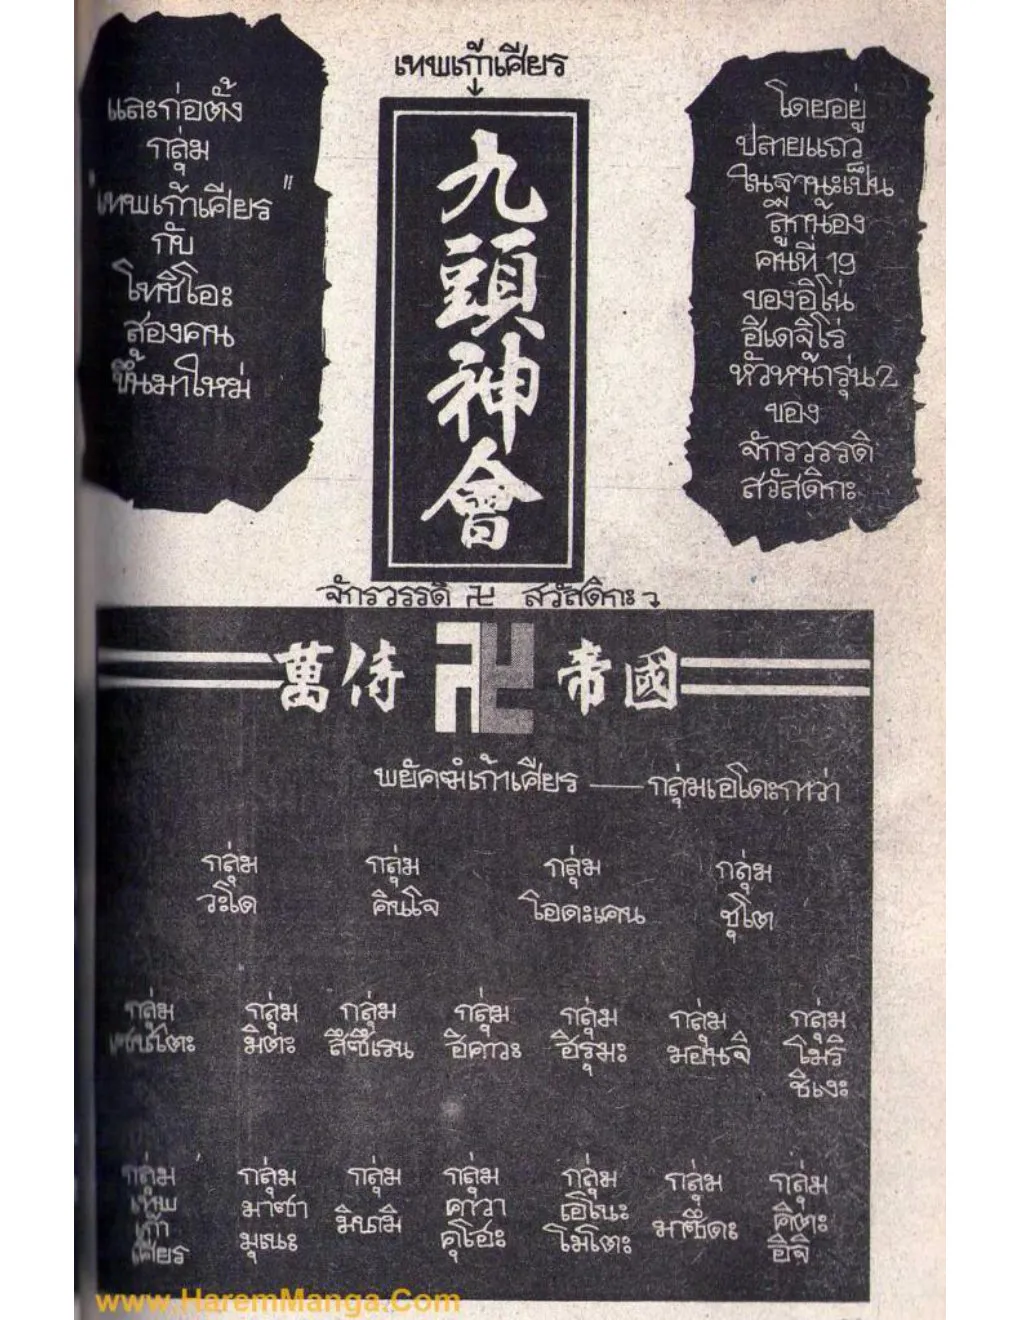 เทพเก้าเศียร
โดยอยู่
ปลายแถว
ในฐานะเป็น
ลูกน้อง
คนที่ 19
ของอิโน่
ฮิเดจิโร่
หัวหน้ารุ่น 2
ของ
จักรวรรดิ
สวัสดิกะ
九頭神會
และก่อตั้ง
กลุ่ม
"เทพเก้าเศียร"
กับ
โทชิโอะ
สองคน
ขึ้นมาใหม่
จักรวรรดิ 卍 สวัสดิกะ
萬侍 卍 帝國
พยัคฆ์เก้าเศียร — กลุ่มเอโดะกาว่า
กลุ่ม กลุ่ม กลุ่ม กลุ่ม
วะโด คินโจ โอดะเคน ชุโต
กลุ่ม กลุ่ม กลุ่ม กลุ่ม กลุ่ม กลุ่ม กลุ่ม
มิตะ สึซึเรน อิคาวะ ฮิรุมะ มอนจิ โมริ
ชิเงะ
กลุ่ม กลุ่ม กลุ่ม กลุ่ม กลุ่ม กลุ่ม กลุ่ม
เทพ มาซา มินามิ คาวา เอโนะ มาซึดะ คิตะ
เก้า มุเนะ คุโฮะ โมโตะ อิจิ
เศียร
www.HaremManga.Com